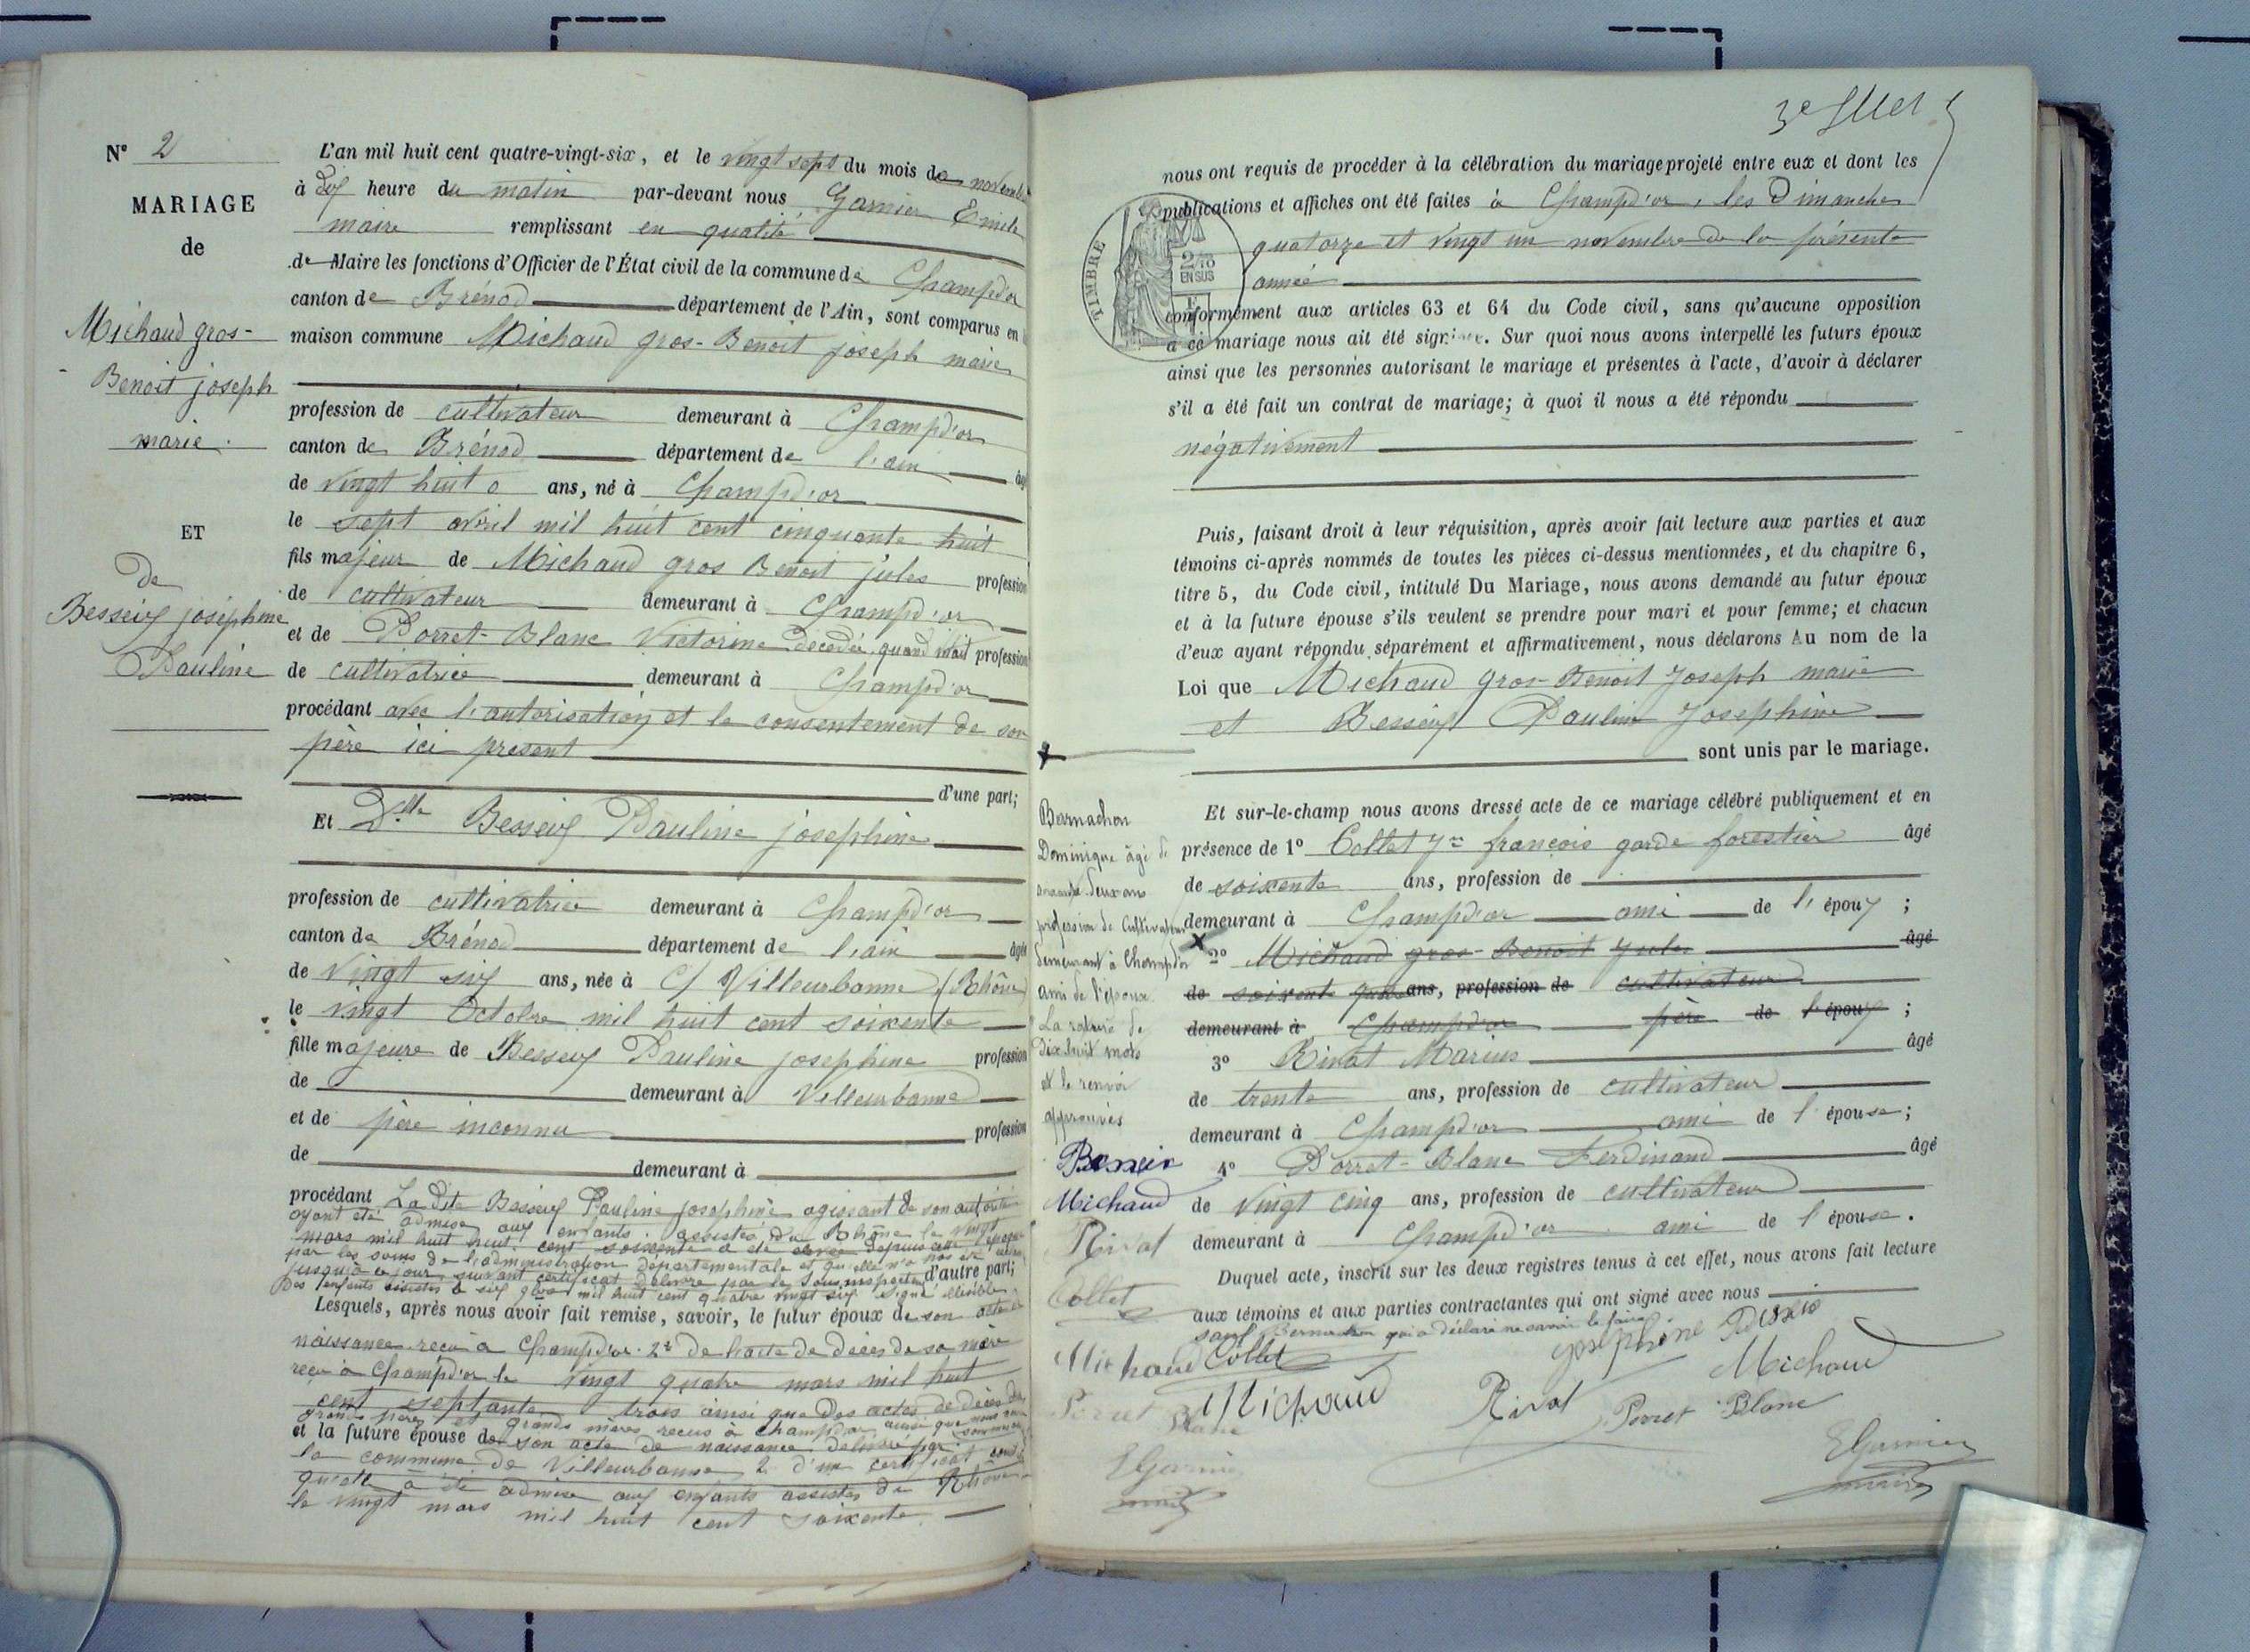 N° 2
MARIAGE
de
Michaud gros-
Benoit joseph
marie.
ET
de
Besseuf joséphine
Pauline
L'an mil huit cent quatre-vingt-six, et le vingt sept du mois de novembre
à dix heure du matin par-devant nous Garnier Emile
maire remplissant en qualité
de Maire les fonctions d'Officier de l'État civil de la commune de Champd'or
canton de Brénod département de l'Ain, sont comparus en
maison commune Michaud gros-Benoit joseph marie
profession de cultivateur demeurant à Champd'or
canton de Brénod département de l'ain âgé
de vingt huit ans, né à Champd'or
le sept avril mil huit cent cinquante huit
fils majeur de Michaud gros Benoit jules profession
de cultivateur demeurant à Champd'or
et de Porret-Blanc Victorine décédée quand vivait profession
de cultivatrice demeurant à Champd'or
procédant avec l'autorisation et le consentement de son
père ici présent
d'une part;
Et Dlle Besseuf Pauline joséphine
profession de cultivatrice demeurant à Champd'or
canton de Brénod département de l'ain âgée
de vingt six ans, née à Villeurbanne (Rhône)
le vingt Octobre mil huit cent soixente
fille majeure de Besseuf Pauline joséphine profession
de demeurant à Villeurbanne
et de père inconnu profession
de demeurant à
procédant La dite Besseuf Pauline joséphine agissant de son autorité
ayant été admise aux enfants assistés du Rhône le vingt
mars mil huit huit cent soixente a été depuis cette époque
par les soins de l'administration départementale et qu'elle n'a pas été
jusqu'à ce jour suivant certificat délivré par le Sous inspecteur d'autre part;
Des enfants assistés le six mil huit cent quatre vingt six signé illisible
Lesquels, après nous avoir fait remise, savoir, le futur époux de son acte de
naissance reçu à Champd'or 2° de l'acte de décès de sa mère
reçu à Champd'or le vingt quatre mars mil huit
cent septante trois ainsi que des actes de décès des
grands pères et grands mères reçus à Champd'or ainsi que nous
et la future épouse de son acte de naissance délivré par
la commune de Villeurbanne 2° d'un certificat
qu'elle a été admise aux enfants assistés du Rhône
le vingt mars mil huit cent soixente.
TIMBRE
2/10
EN SUS
nous ont requis de procéder à la célébration du mariage projeté entre eux et dont les
publications et affiches ont été faites à Champd'or, les Dimanches
quatorze et vingt un novembre de la présente
année
conformément aux articles 63 et 64 du Code civil, sans qu'aucune opposition
à ce mariage nous ait été signifiée. Sur quoi nous avons interpellé les futurs époux
ainsi que les personnes autorisant le mariage et présentes à l'acte, d'avoir à déclarer
s'il a été fait un contrat de mariage; à quoi il nous a été répondu
négativement
Puis, faisant droit à leur réquisition, après avoir fait lecture aux parties et aux
témoins ci-après nommés de toutes les pièces ci-dessus mentionnées, et du chapitre 6,
titre 5, du Code civil, intitulé Du Mariage, nous avons demandé au futur époux
et à la future épouse s'ils veulent se prendre pour mari et pour femme; et chacun
d'eux ayant répondu séparément et affirmativement, nous déclarons Au nom de la
Loi que Michaud gros-Benoit Joseph marie
et Besseuf Pauline Joséphine
sont unis par le mariage.
Et sur-le-champ nous avons dressé acte de ce mariage célébré publiquement et en
présence de 1° Collet françois garde forestier âgé
de soixente ans, profession de
demeurant à Champd'or ami de l'époux;
2° Michaud gros-Benoit Jules âgé
de soixente ans, profession de cultivateur
demeurant à Champd'or père de l'époux;
3° Rivat Marius âgé
de trente ans, profession de cultivateur
demeurant à Champd'or ami de l'épouse;
4° Porret-Blanc Ferdinand âgé
de vingt cinq ans, profession de cultivateur
demeurant à Champd'or ami de l'épouse.
Duquel acte, inscrit sur les deux registres tenus à cet effet, nous avons fait lecture
aux témoins et aux parties contractantes qui ont signé avec nous
sauf Bernachon qui a déclaré ne savoir le faire
Bernachon
Dominique âgé de
deux ans
profession de Cultivateur
demeurant à Champd'or
ami de l'époux
La rature de
dix huit mots
et le renvoi
approuvés
Michaud
Rivat
Collet
Michaud
Porret
Blanc
EGarnier
maire
Collet
joséphine
Michaud
Michaud
Rivat
Porret Blanc
EGarnier
maire